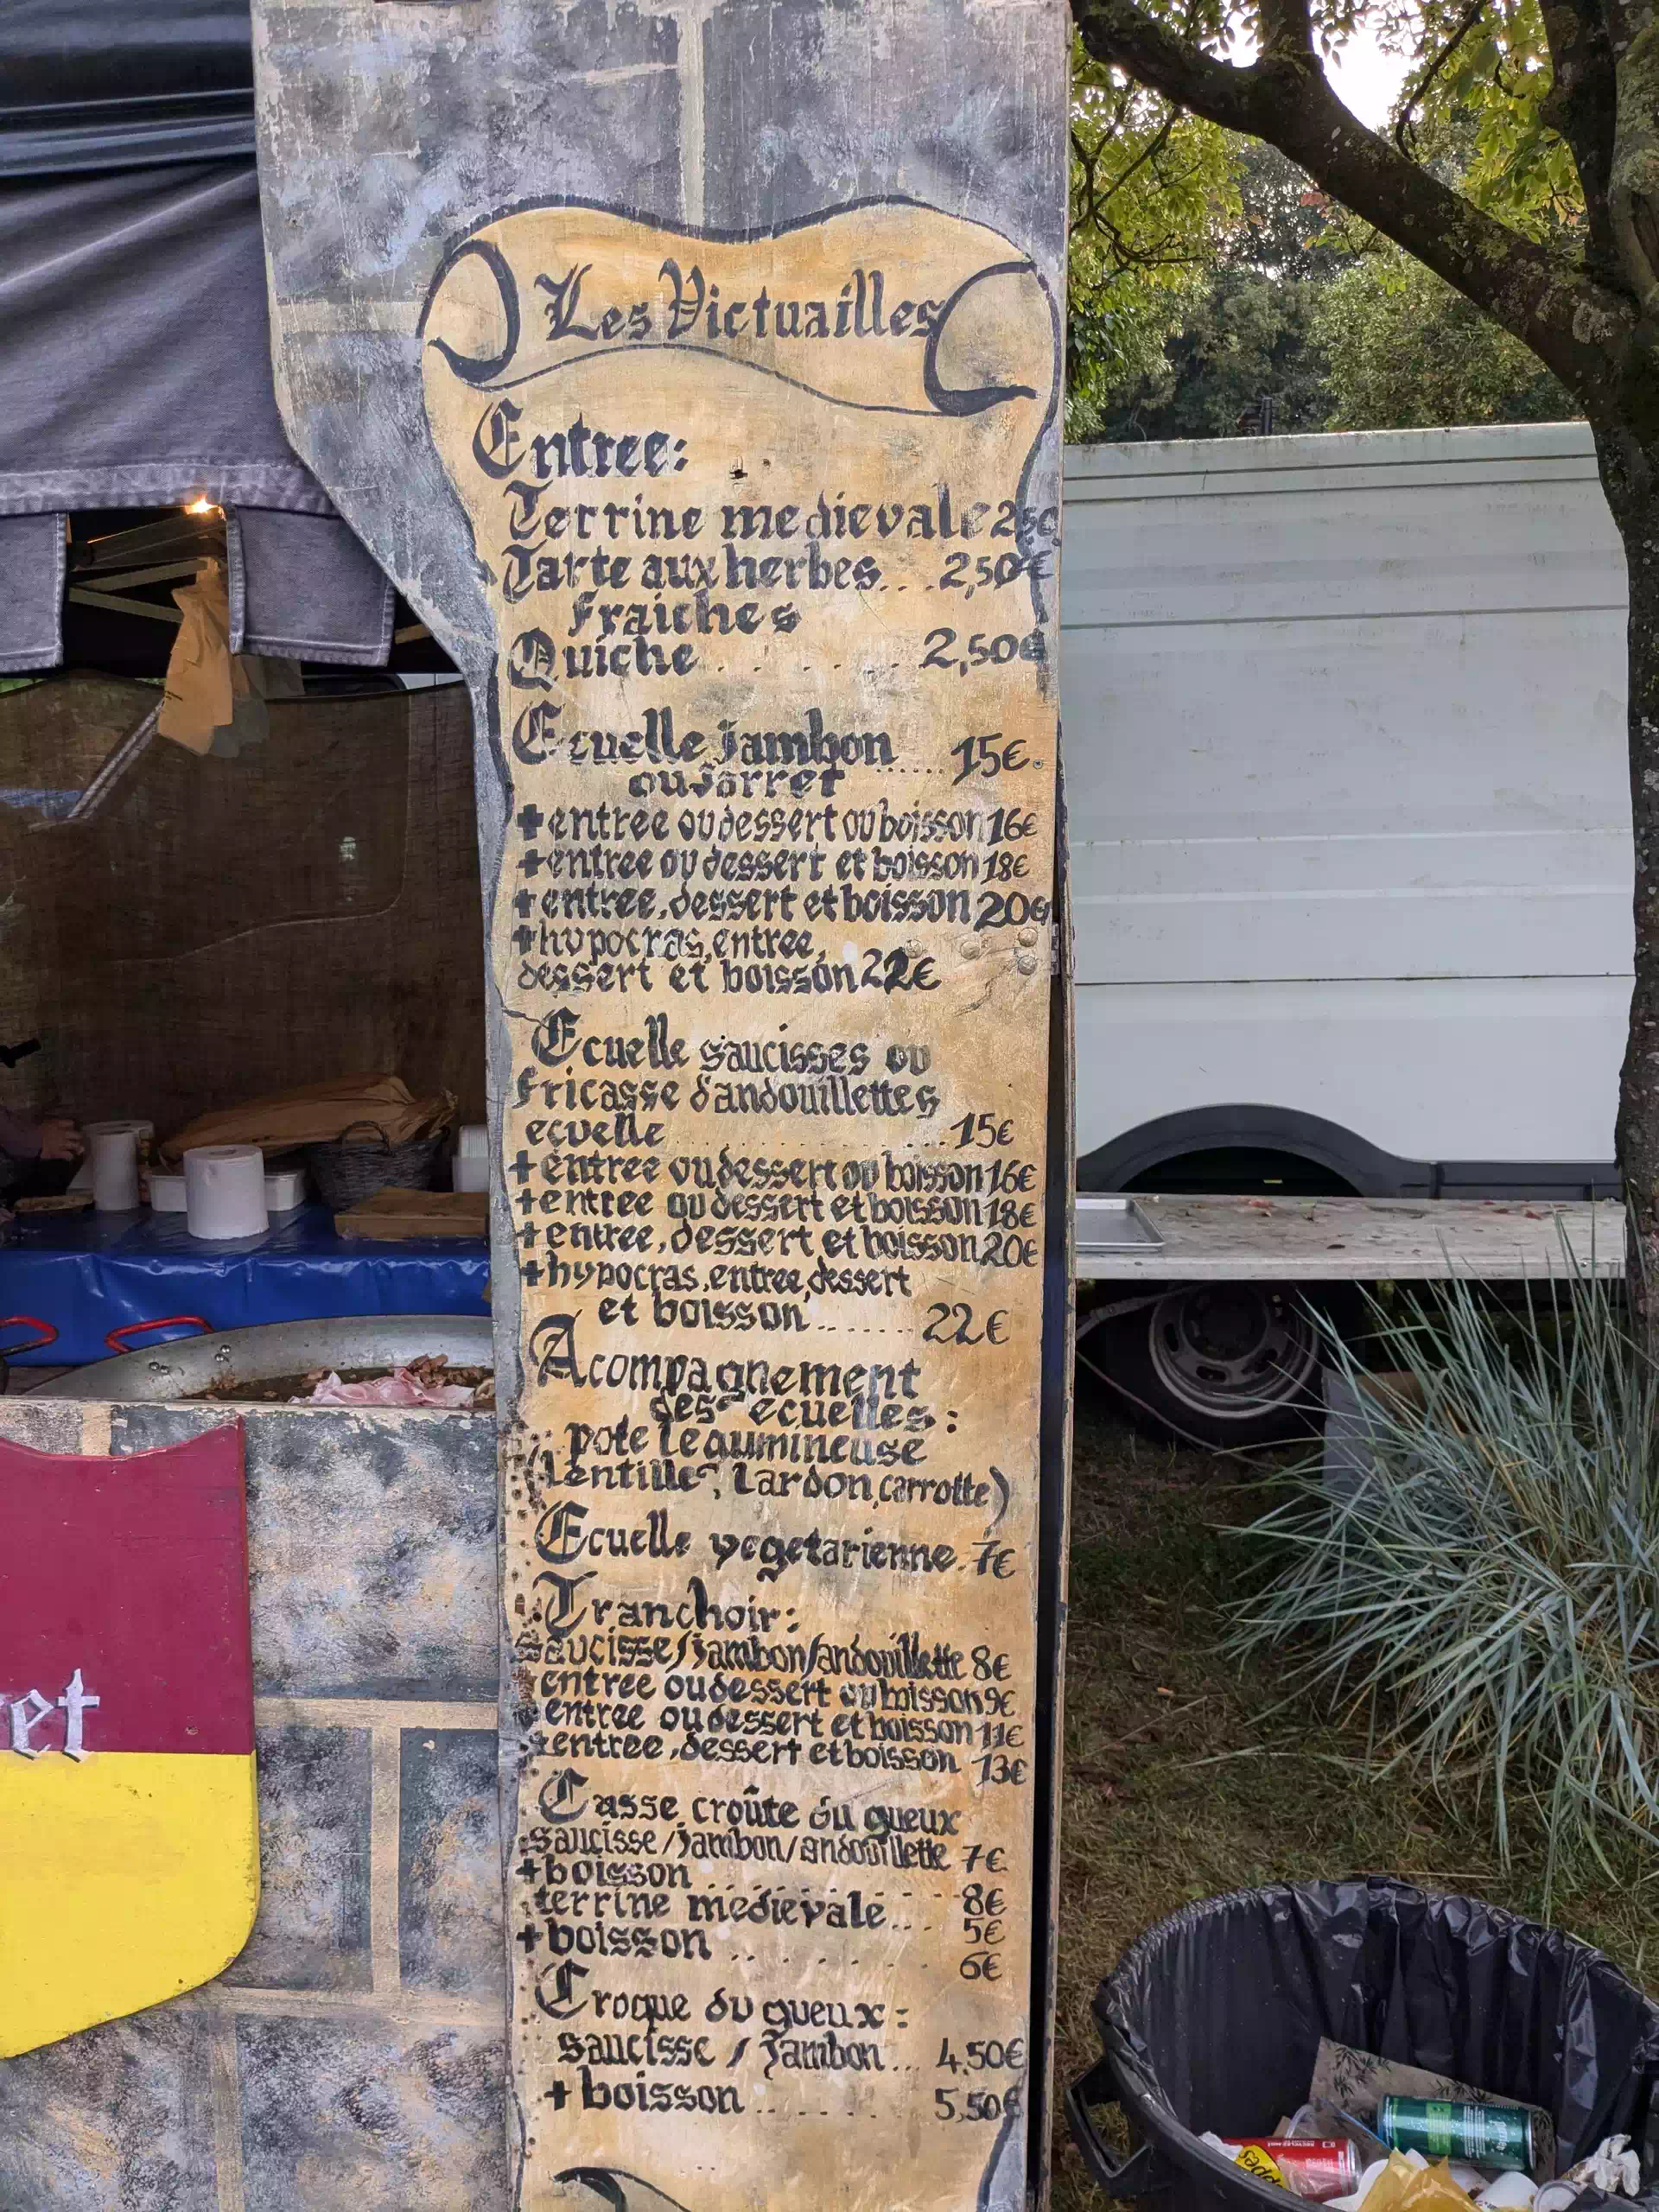 Les Victuailles
Entree:
Terrine medievale 2,50
Tarte aux herbes... 2,50€
fraiches
Quiche........ 2,50€
Ecuelle jambon ...... 15€
ou jarret
+entree ou dessert ou boisson 16€
+entree ou dessert et boisson 18€
+entree, dessert et boisson 20€
+hypocras, entree,
dessert et boisson 22€
Ecuelle saucisses ou
fricasse d'andouillettes
ecuelle .................... 15€
+entree ou dessert ou boisson 16€
+entree ou dessert et boisson 18€
+entree, dessert et boisson 20€
+hypocras, entree, dessert
et boisson ....... 22€
Acompagnement
des ecuelles:
pote legumineuse
(Lentille, Lardon, carrotte)
Ecuelle vegetarienne. 7€
Tranchoir:
saucisse/jambon/andouillette 8€
entree ou dessert ou boisson 9€
entree ou dessert et boisson 11€
+entree, dessert et boisson 13€
Casse croûte du gueux
saucisse/jambon/andouillette 7€
+boisson .................. 8€
terrine medievale.... 5€
+boisson ........... 6€
Croque du gueux:
saucisse / Jambon... 4,50€
+ boisson ........ 5,50€
et